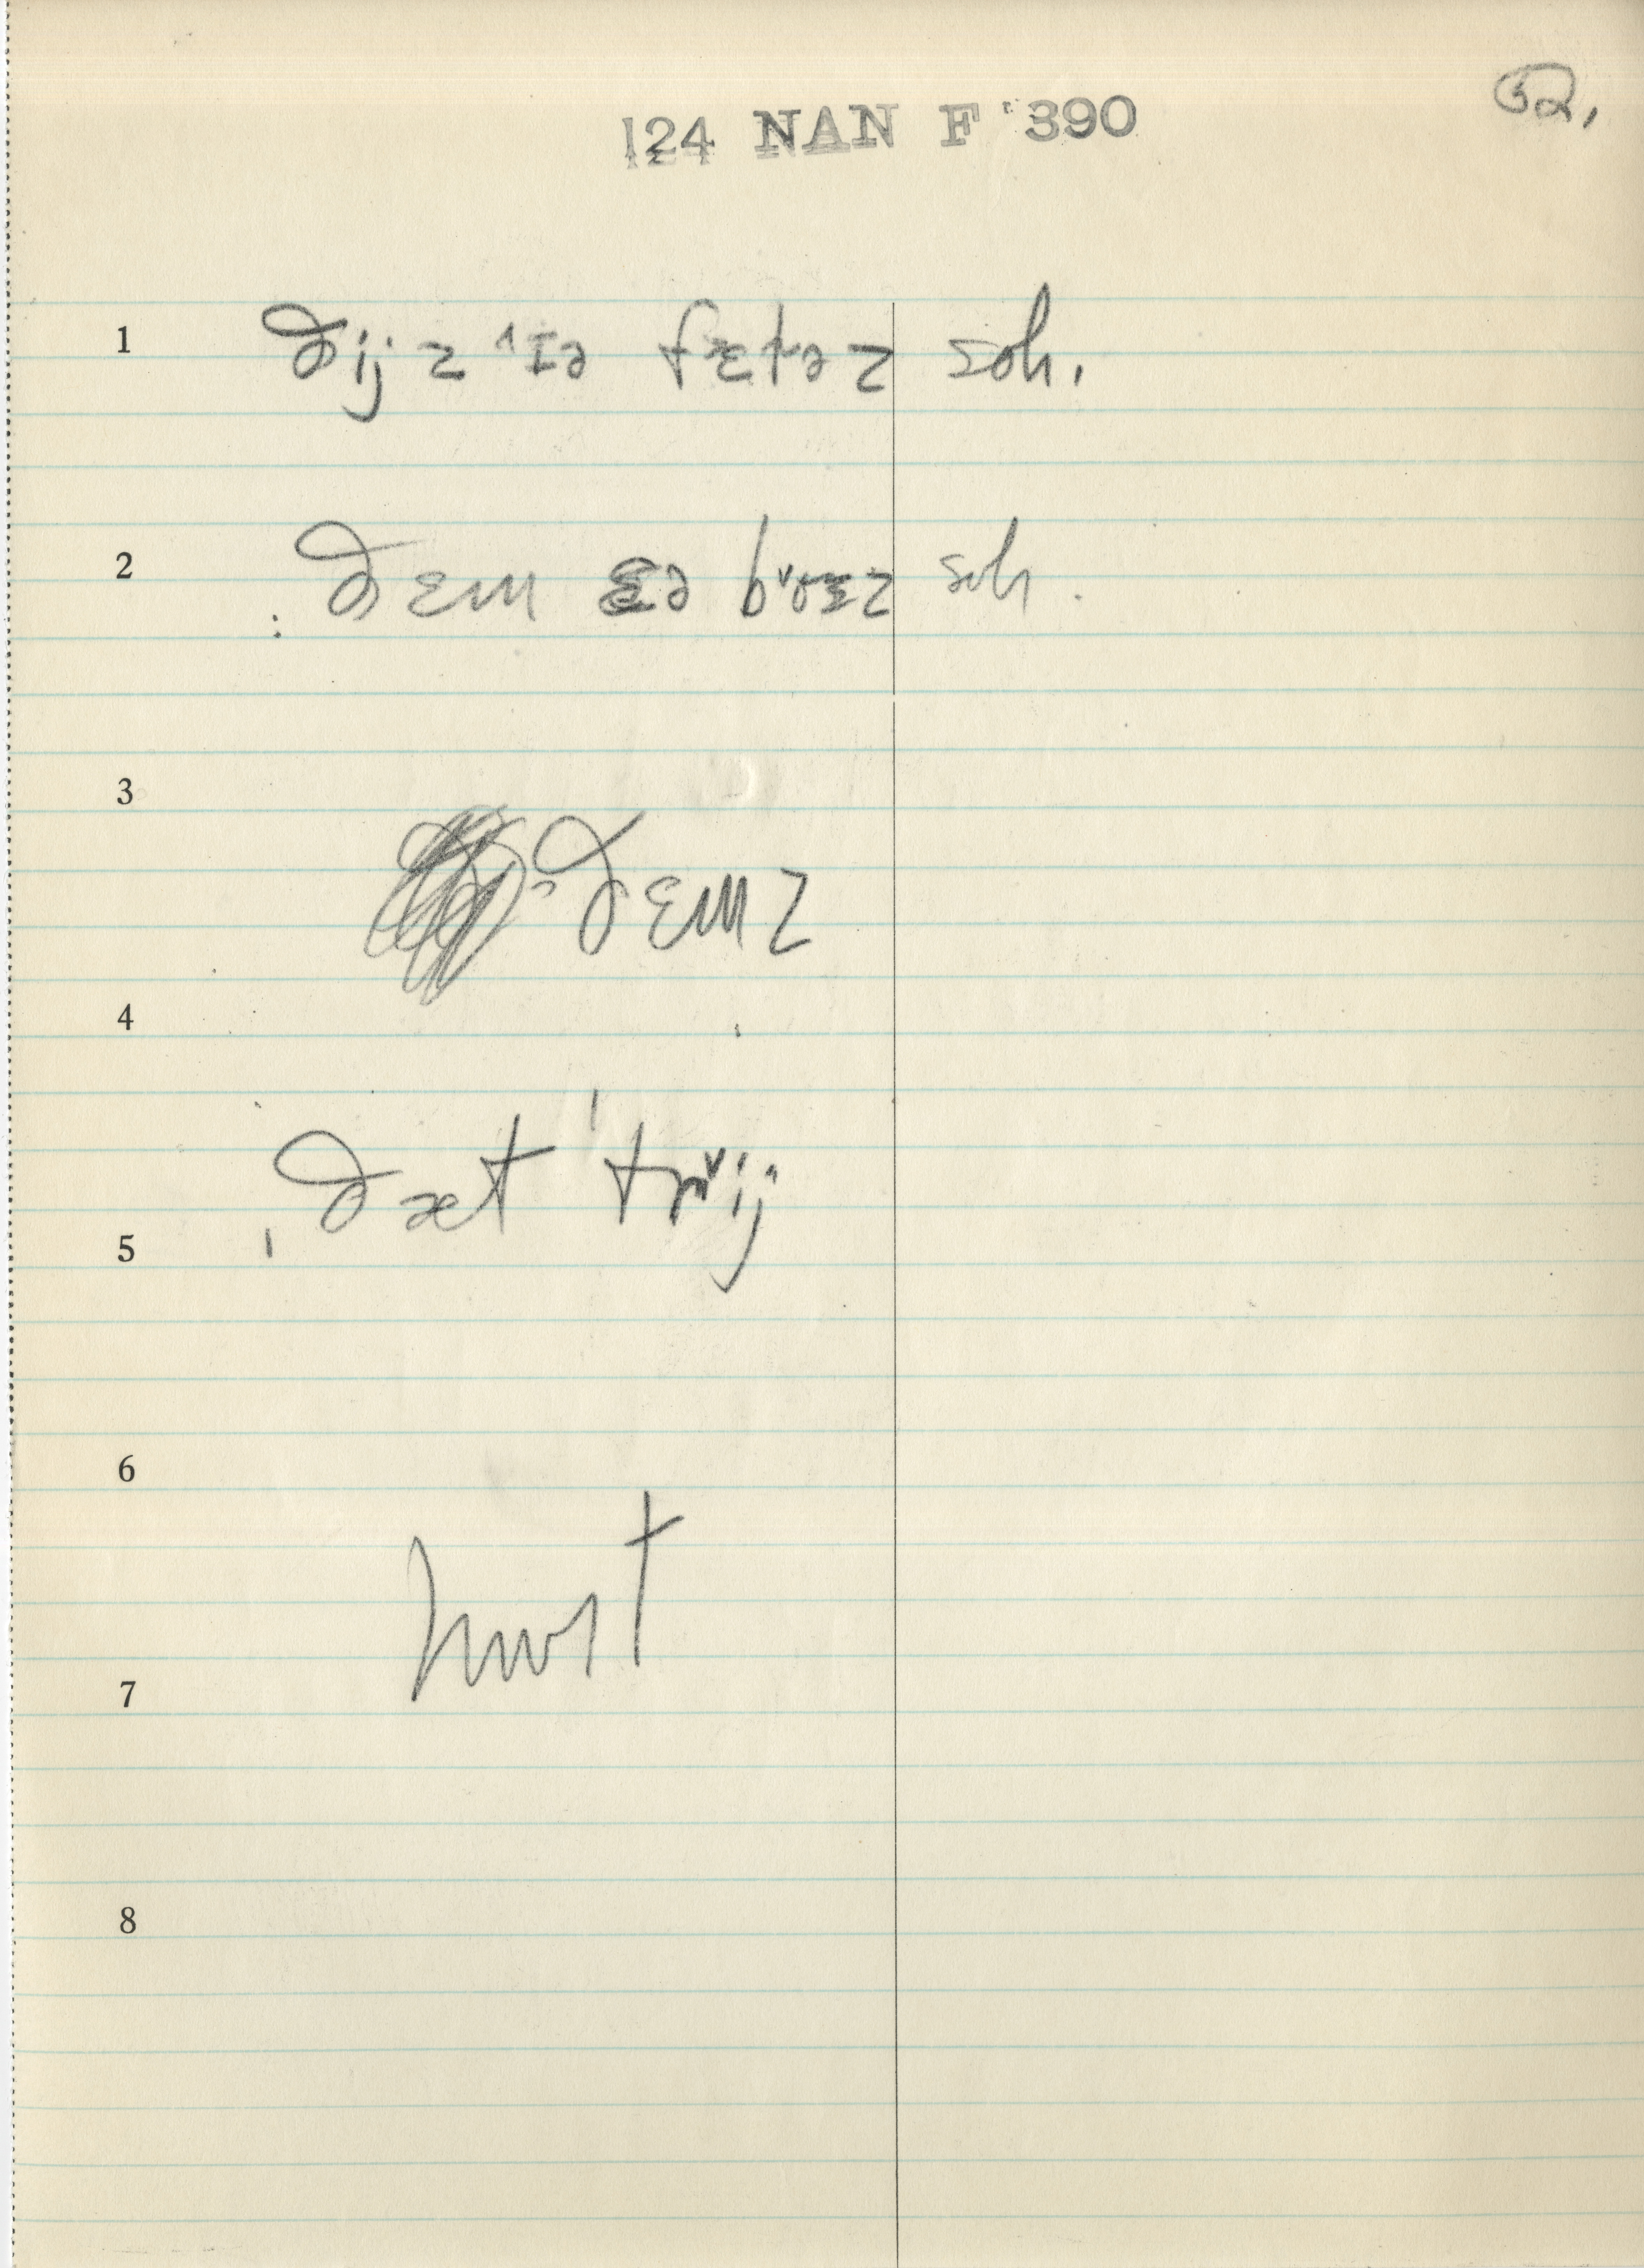 124 NAN F 390
52.
1 ðijz ˈɪə fɛtəz soh.
2 ðɛm ɛə bʌ̌oɛz soh.
3
ðɛmz
4
ðæt trʌ̌ij
5
6
hwɪt
7
8